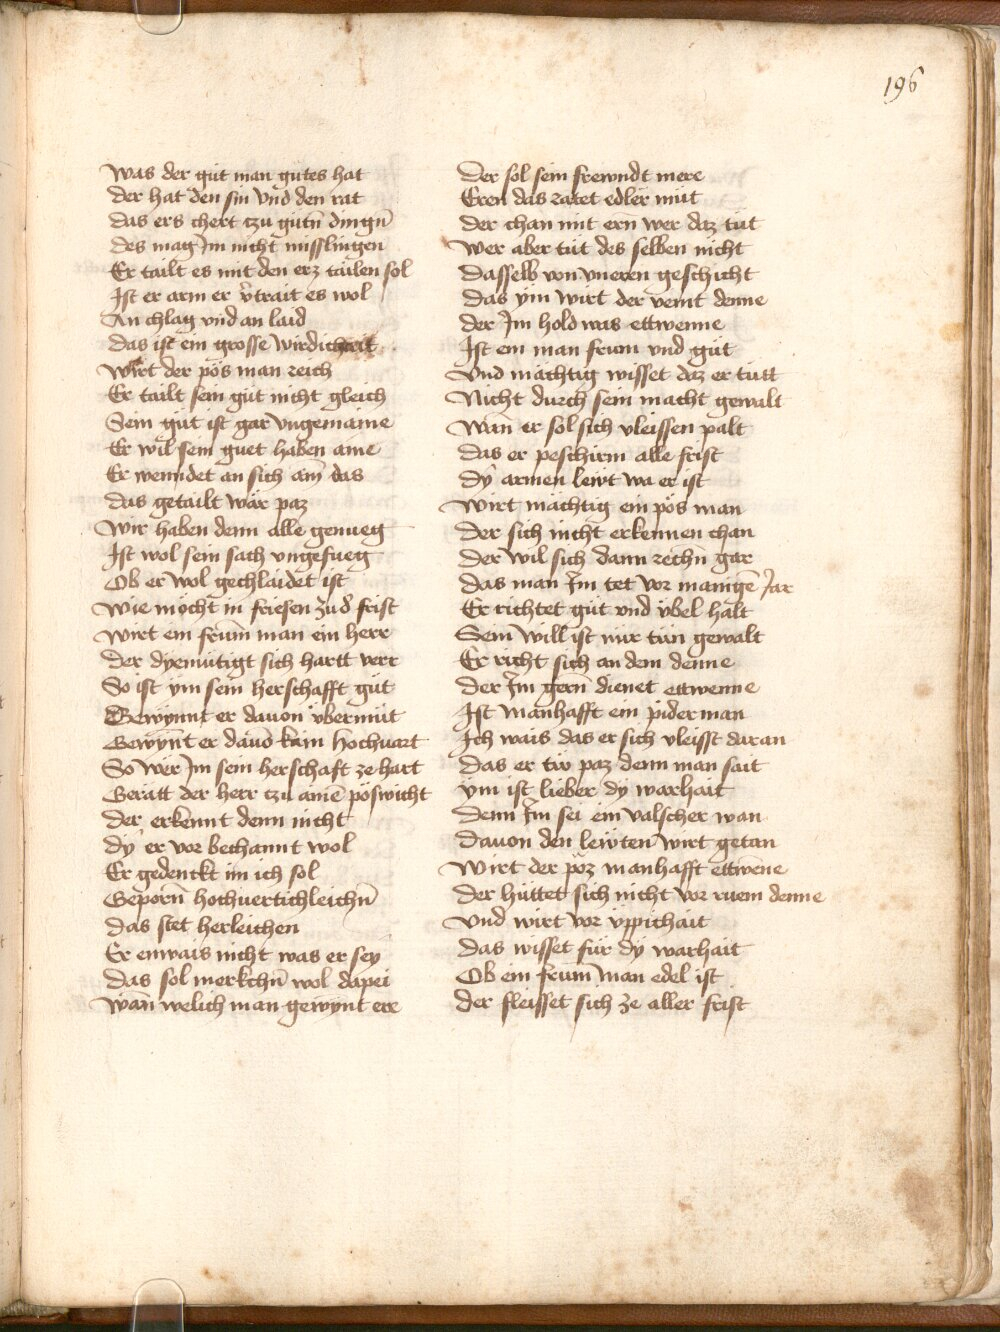 196
Was der gůt man gutes hat
der hat den sin vnd den rat
das ers chert tzu gutñ dingñ
des mag Im nicht misslingen
Er tailt es mit den erz tailen sol
Ist er arm er v̄trait es wol
An chlag vnd an laid
das ist ein grosse wirdichait
Wirt der pös man reich
Er tailt sein gůt nicht gleich
Sein gůt ist gar vngemaine
Er wil sein guet haben aine
Er wenndet an sich ain das
das getailt wär paz
Wir haben denn alle genueg
Ist wol sein sach vngefueg
Ob er wol gechlaidet ist
Wie möcht in friesen zu d̄ frist
Wirt ein frum̄ man ein herr
Der dyemütigt sich hartt verr
So ist ym sein herschafft gůt
Gewynnt er dauon v̈bermůt
Gewyn̄t er dauō kain hochuart
So wer Im sein herschaft ze hart
Geratt der herr tzu ainē pöswicht
Der erkennt denn nicht
dy er vor bechannt wol
Er gedenckt im ich sol
Geporñ hochuertichleichñ
das stet herleichen
Er enwais nicht was er sey
Das sol merkchñ wol dapei
Wan̄ welich man gewynt ere
Der sol sein frewndt mere
Eren das ratet edler můt
der chan mit ern wer daz tut
Wer aber tůt des selben nicht
Dasselb von vneren geschicht
Das ym wirt der veint denne
der Im hold was ettwenne
Ist ein man frum vnd gůt
Vnd mächtig wisset daz er tůtt
Nicht durch sein macht gewalt
Wan̄ er sol sich vleissen palt
das er peschirm alle frist
dy armen lewt wa er ist
Wirt mächtig ein pös man
Der sich nicht erkennen chan
Der wil sich dann rechñ gar
das man Im tet vor manigē Jar
Er richtet gůt vnd v̈bel halt
Sein will ist nur tun gewalt
Er richt sich an dem denne
Der Im gerñ dienet ettwenne
Ist manhafft ein piderman
Ich wais das er sich vleisst daran
Das er tw paz denn man sait
ym ist lieber dy warhait
Denn Im sei ein valscher wan
dauon den lewten wirt getan
Wirt der pöz manhafft ettwēne
der hüttet sich nicht vor ruem denne
Vnd wirt vor vppichait
Das wisset für dy warhait
Ob ein frum̄ man edel ist
Der fleisset sich ze aller frist